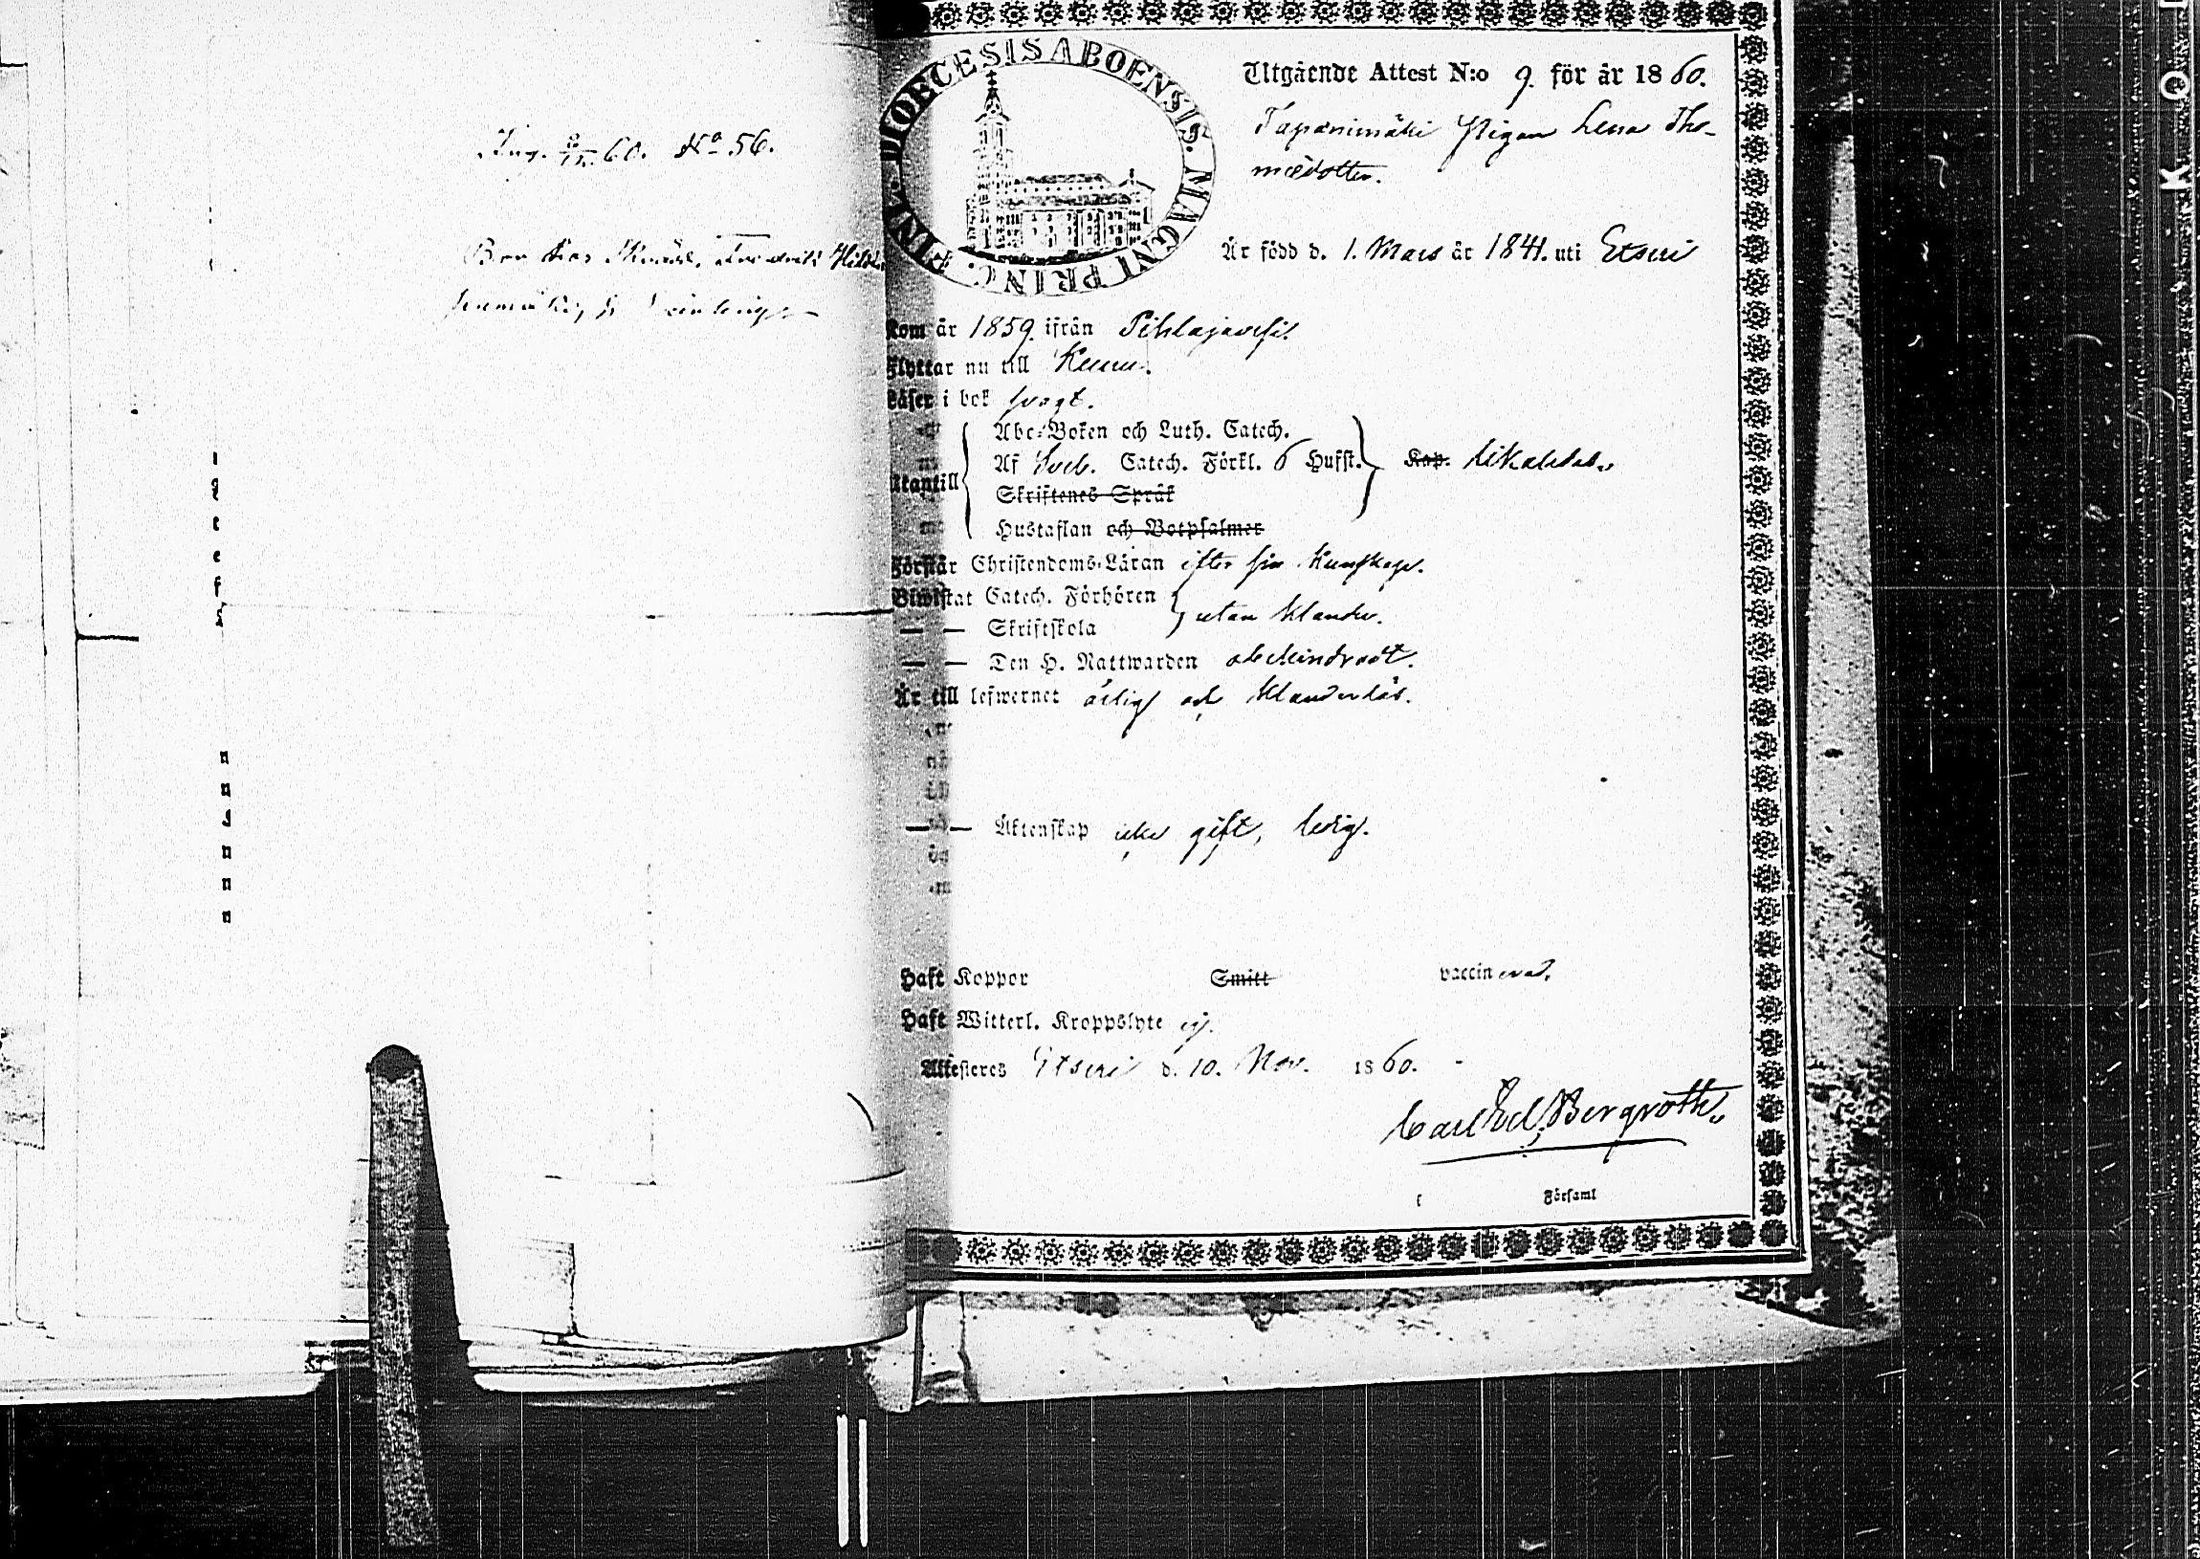 Ing. 60. No 56.
DIOECESIS ABOENSIS. MAGNI PRINC. FINL.
Utgående Attest N:o 9. för år 1860.
Tapanimäki Pigan Lena Tho-
mædotter.
Är född d. 1. Mars år 1841. uti Etseri
Kom år 1859. ifrån Pihlajavesi.
Flyttar nu till Keuru.
Läser i bok svagt.
Abc-Boken och Luth. Catech.
Af Sveb. Catech. Förkl. 6 Hufst. Kap. likaledes.
Utantill
Skriftenes Språk
Hustaflan och Botpsalmer
Förstår Christendoms-Läran efter sin kunskap.
Biwistat Catech. Förhören
utan klander.
— — Skriftskola
— — Den H. Nattwarden obehindradt.
Är till lefwernet ärlig och klanderlös.
— — Äktenskap icke gift, ledig.
Haft Koppor Smitt vaccinerad.
Haft Witterl. Kroppslyte ej.
Attesteres Etseri d. 10. Nov. 1860.
Carl Ed. Bergroth.
Församl